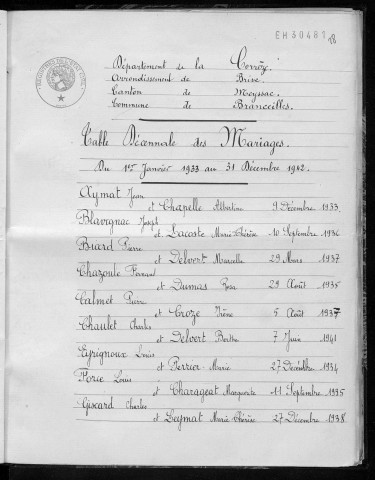 EH30481
18
Département de la Corrèze
Arrondissement de Brive
Canton de Meyssac
Commune de Branceilles
Table Décennale des Mariages.
Du 1er Janvier 1933 au 31 Décembre 1942.
Aymat Jean
et Chapelle Albertine 9 Décembre 1933.
Blavignac Joseph
et Lacoste Marie-Thérèse 10 Septembre 1936
Buard Pierre
et Delvert Marcelle 29 Mars 1937
Chazoule Fernand
et Dumas Rose 29 Août 1935
Calmet Pierre
et Croze Irène 5 Août 1937
Chaulet Charles
et Delvert Berthe 7 Juin 1941
Eyrignoux Louis
et Perrier Marie 27 Décembre 1934
Louis
et Charageat Marguerite 11 Septembre 1935
Giscard Charles
et Leymat Marie-Thérèse 27 Décembre 1938